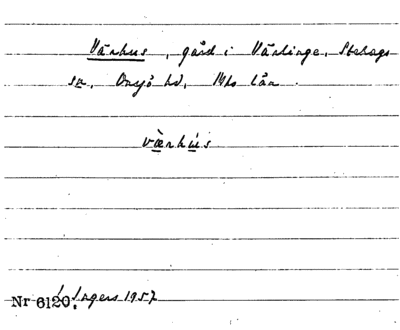 Värhus, gård i Värlinge, Stehags
sn, Onsjö hd, Mhs län.
värhús
Nr 6120. Ingers 1957